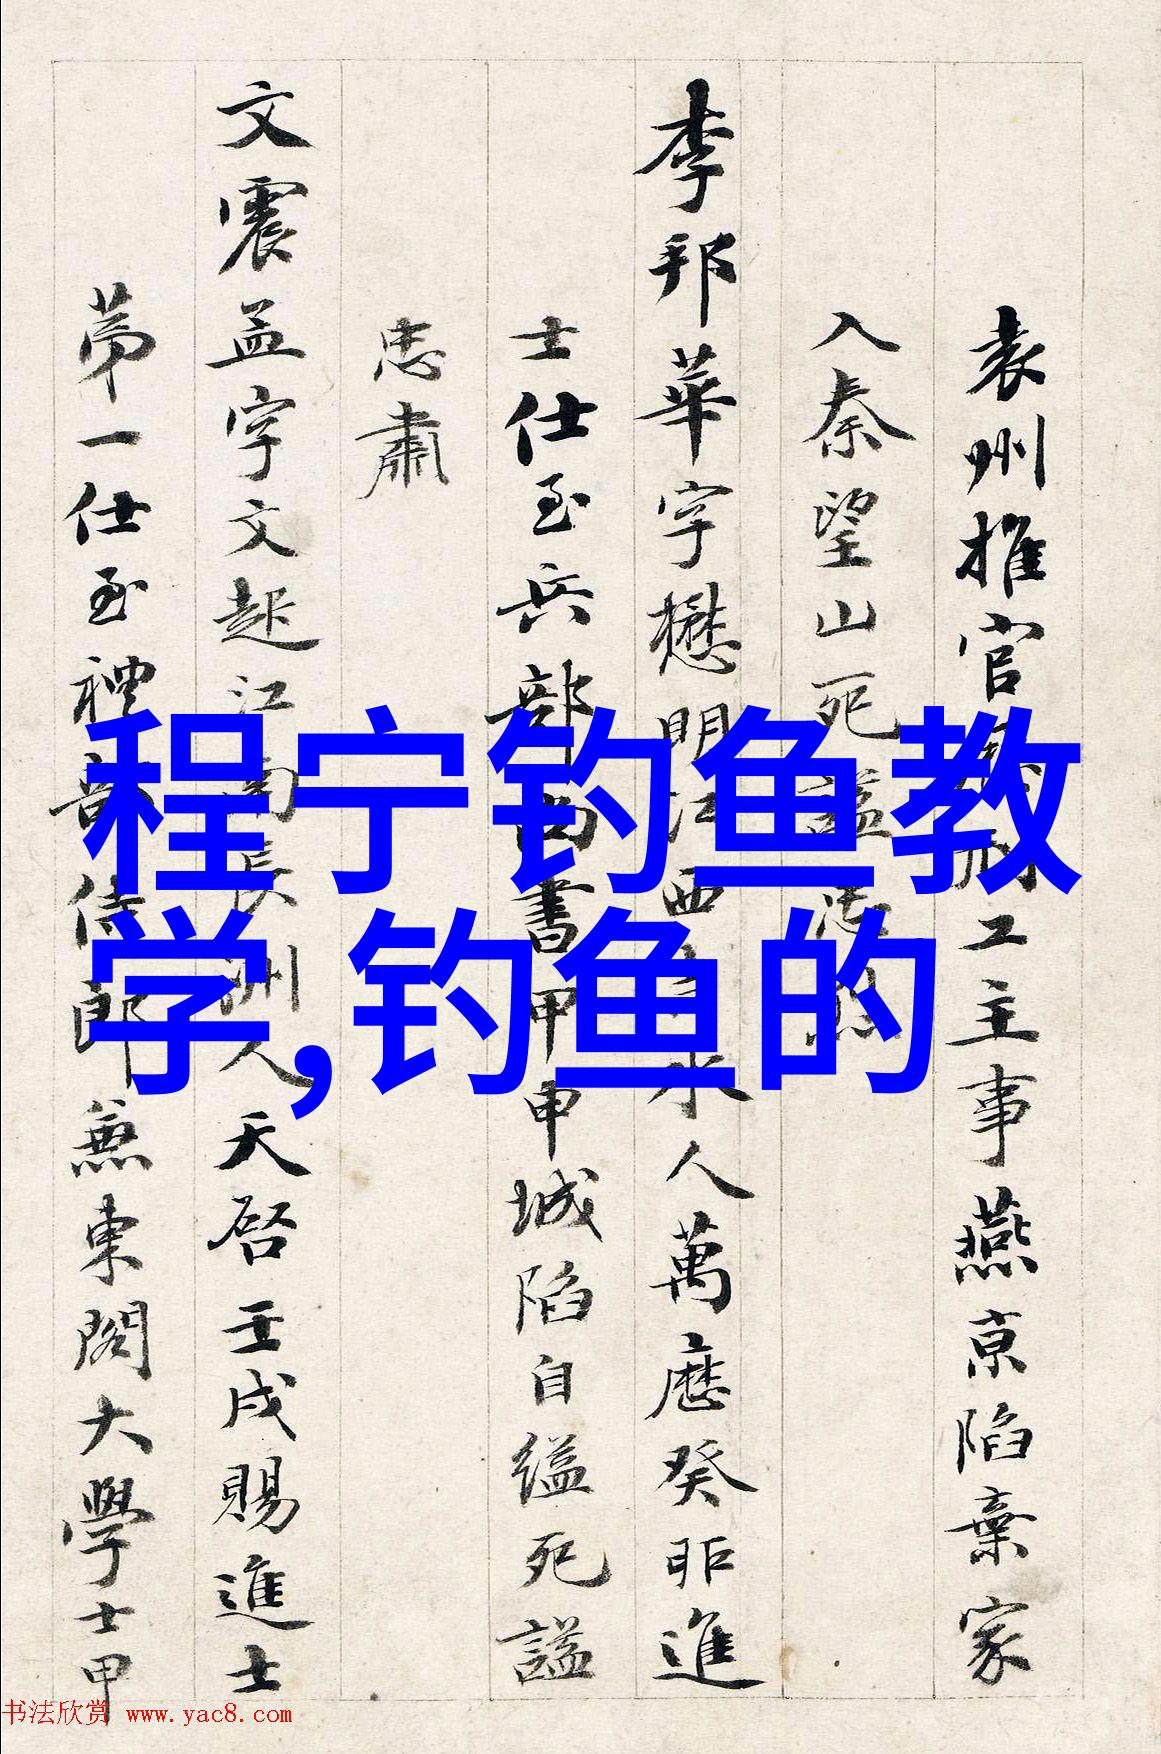 袁州推官 工主事燕京陷棄家
入秦望山死謚忠烈
李邦華字懋明江西吉水人萬曆癸卯進
士仕至兵部尚書甲申城陷自縊死謚
忠肅
文震孟字文起江南長洲人天啓壬戌賜進士
第一仕至禮部侍郎兼東閣大學士甲
程宁钓鱼教
学,钓鱼的
书法欣赏 www.yac8.com